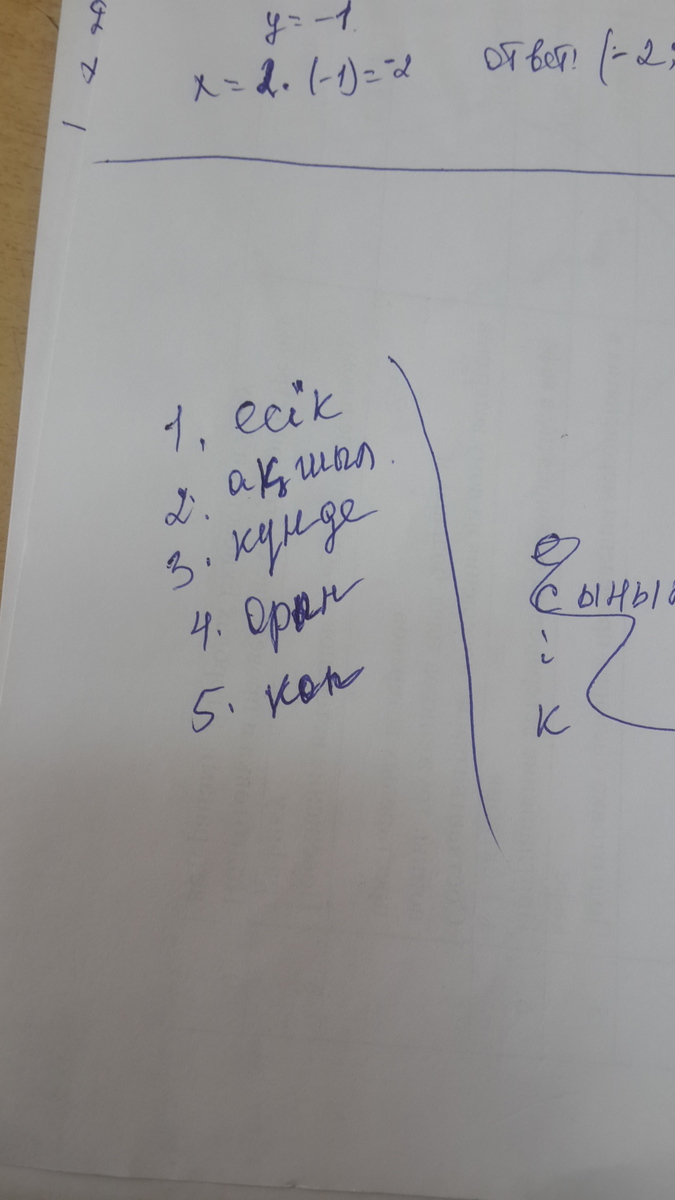 y = -1.
x = 2 · (-1) = -2
Ответ: (-2;
1. есік
2. ақшыл.
3. күнде
4. орын
5. көп
е
с ыны
і
к